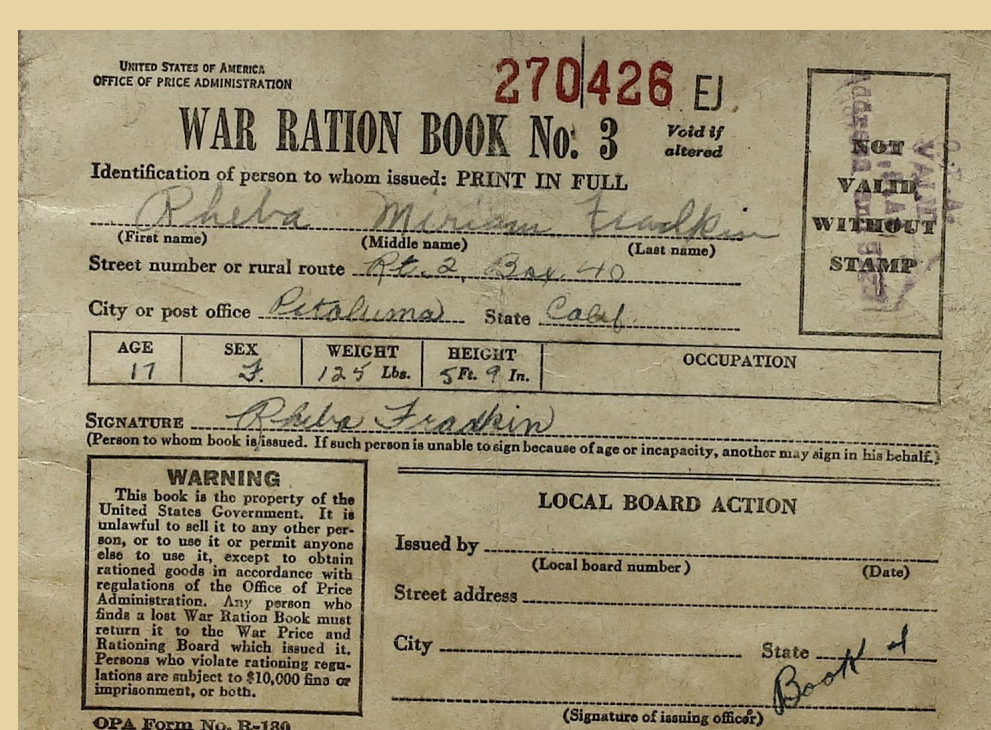 UNITED STATES OF AMERICA
OFFICE OF PRICE ADMINISTRATION
270426 EJ
WAR RATION BOOK No. 3
Void if
altered
Identification of person to whom issued: PRINT IN FULL
Rheba Miriam Fradkin
(First name) (Middle name) (Last name)
Street number or rural route Rt. 2, Box 40
City or post office Petaluma State Calif.
NOT
VALID
WITHOUT
STAMP
AGE SEX WEIGHT HEIGHT OCCUPATION
17 F. 125 Lbs. 5 Ft. 9 In.
SIGNATURE Rheba Fradkin
(Person to whom book is issued. If such person is unable to sign because of age or incapacity, another may sign in his behalf.)
WARNING
This book is the property of the
United States Government. It is
unlawful to sell it to any other per-
son, or to use it or permit anyone
else to use it, except to obtain
rationed goods in accordance with
regulations of the Office of Price
Administration. Any person who
finds a lost War Ration Book must
return it to the War Price and
Rationing Board which issued it.
Persons who violate rationing regu-
lations are subject to $10,000 fine or
imprisonment, or both.
OPA Form No. R-130
LOCAL BOARD ACTION
Issued by
(Local board number) (Date)
Street address
City State
Book 4
(Signature of issuing officer)